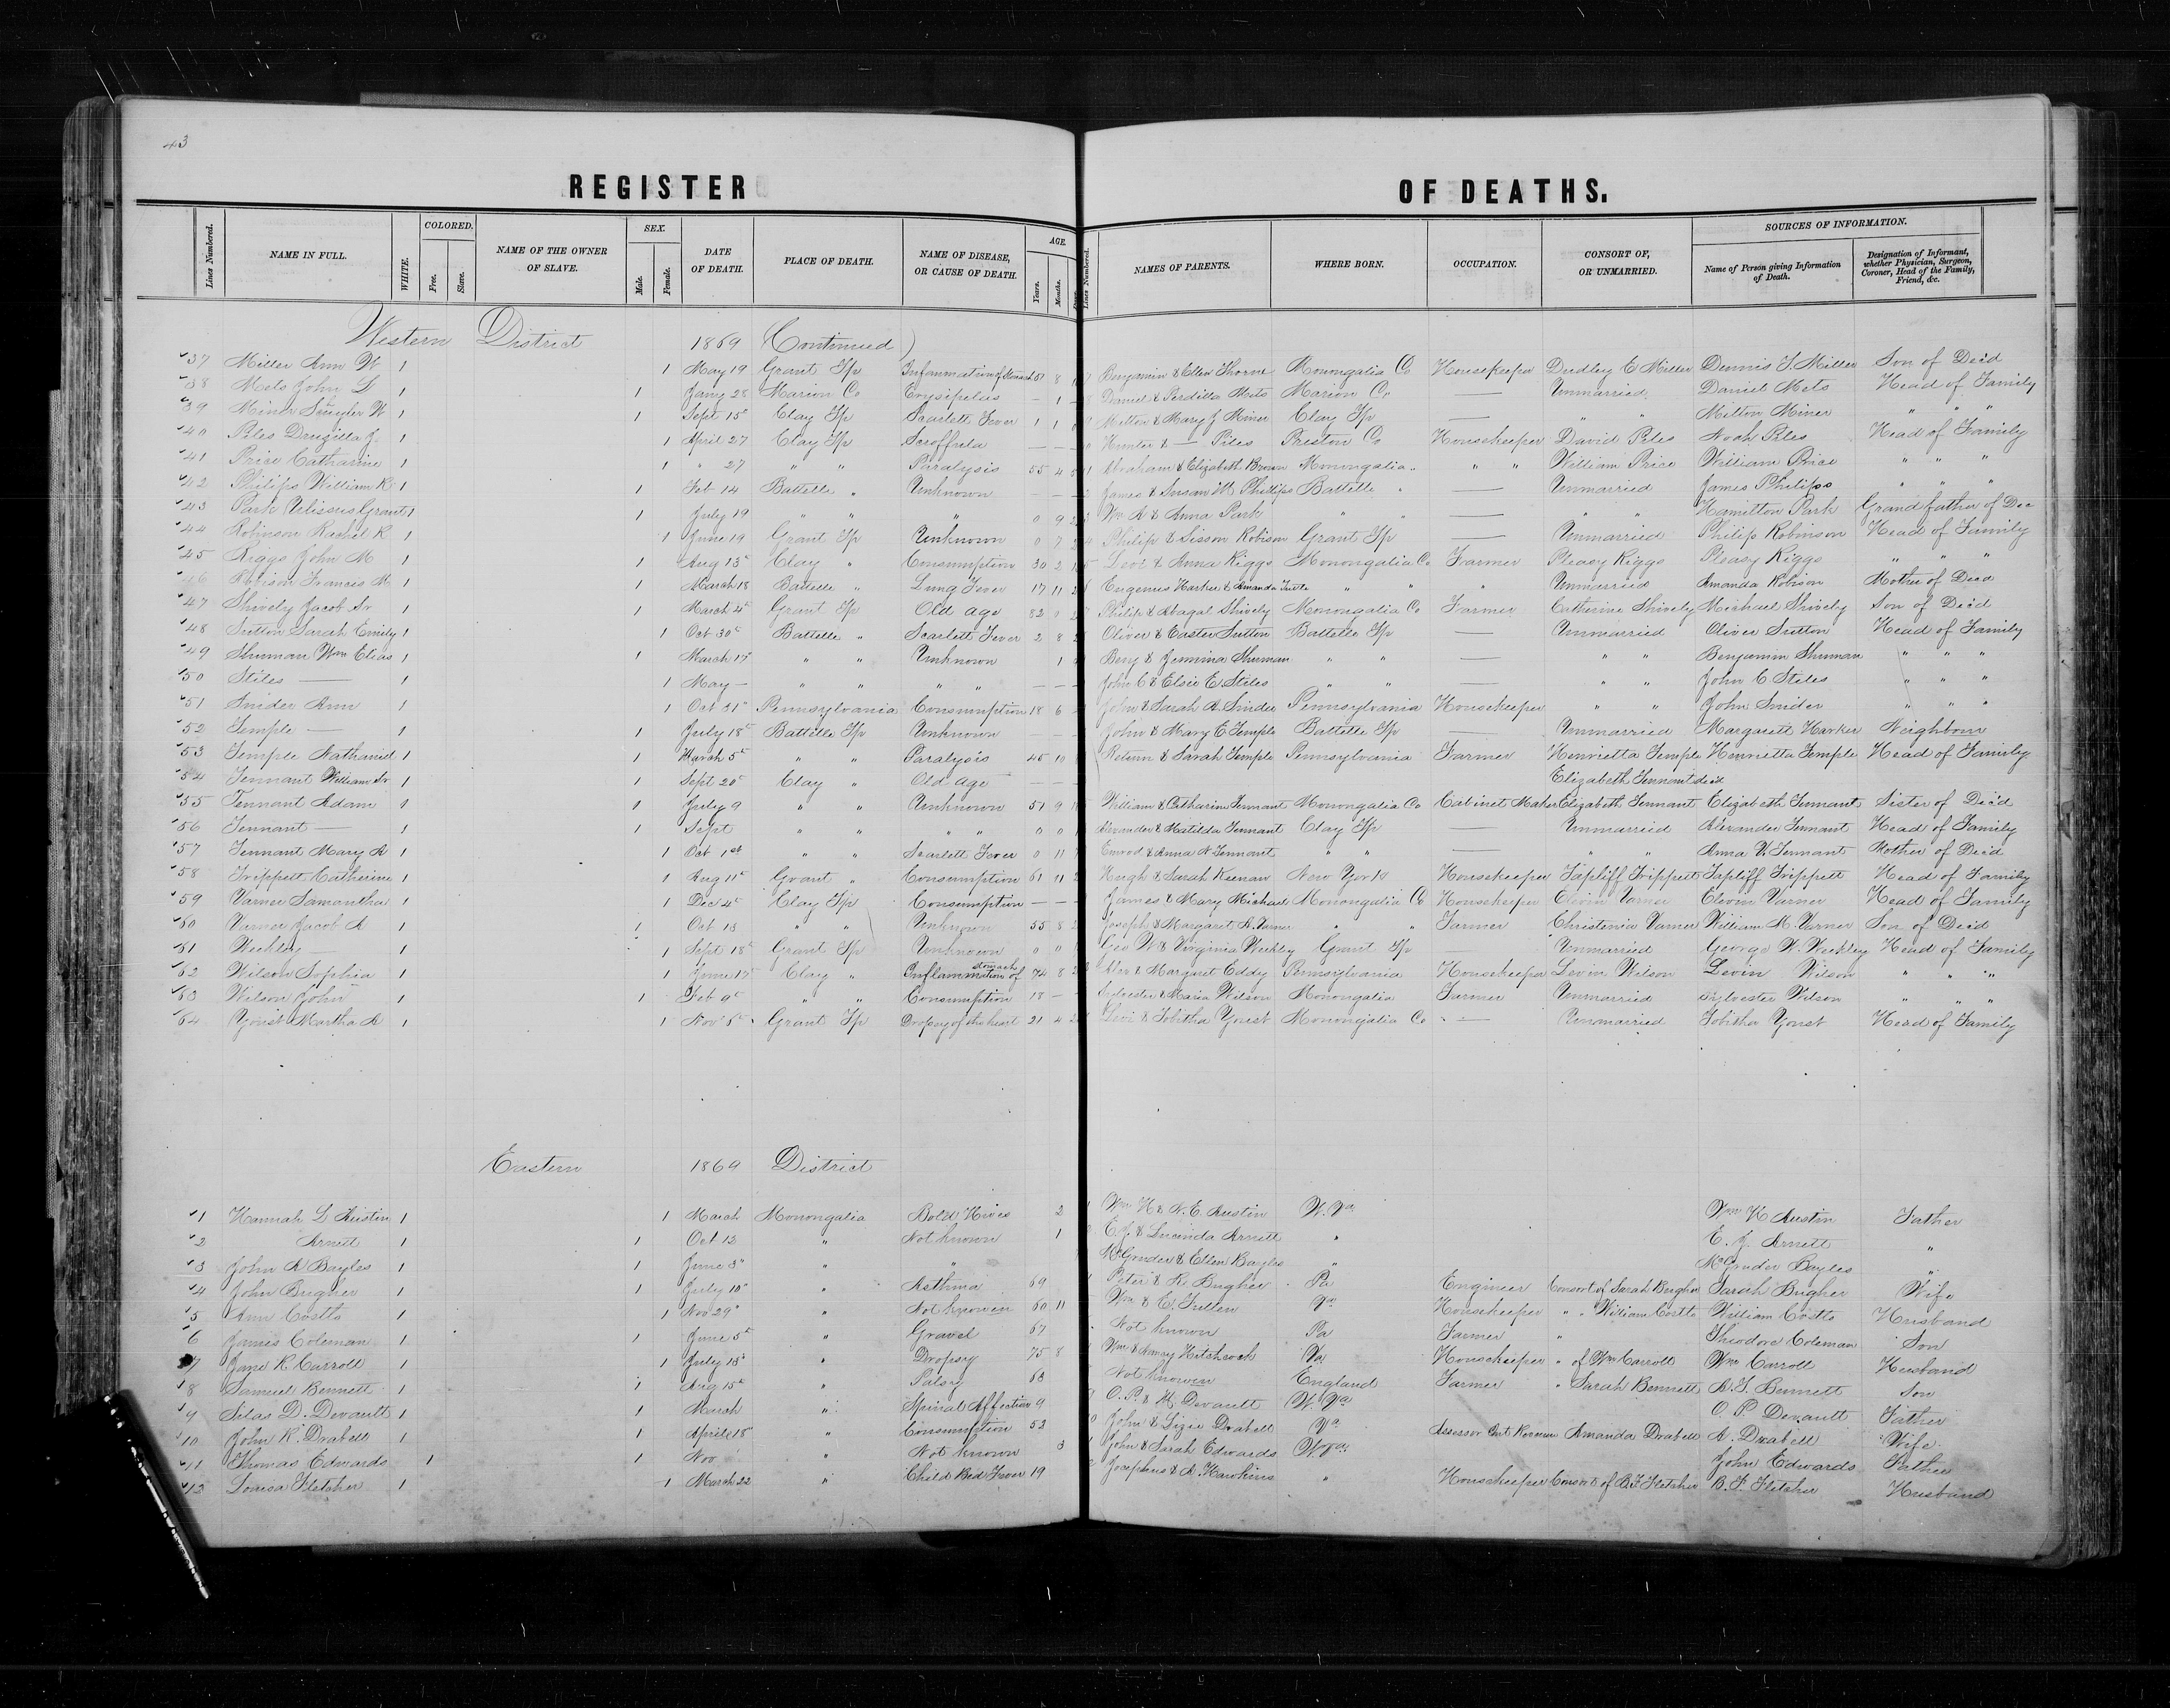 43
REGISTER OF DEATHS.
Lines Numbered. NAME IN FULL. WHITE. COLORED. Free. Slave. NAME OF THE OWNER OF SLAVE. SEX. Male. Female. DATE OF DEATH. PLACE OF DEATH. NAME OF DISEASE, OR CAUSE OF DEATH. AGE. Years. Months. Lines Numbered. NAMES OF PARENTS. WHERE BORN. OCCUPATION. CONSORT OF, OR UNMARRIED. SOURCES OF INFORMATION. Name of Person giving Information of Death. Designation of Informant, whether Physician, Surgeon, Coroner, Head of the Family, Friend, &c.
Western District 1869 (Continued)
37 Miller Ann W 1 1 May 19 Grant Tp Infammation of Stomach 8 Benjamin & Ellen Thorne Monongalia Co Housekeeper Dudley E Miller Dennis T. Miller Son of Decd
38 Mets John L 1 1 Jany 28 Marion Co Erysipelis — 1 Daniel & Perdilla Mets Marion Co — Unmarried Daniel Mets Head of Family
39 Miner W 1 1 Sept 15 Clay Tp Scarlett Fever 1 1 Melton & Mary J Miner Clay Tp — " " Milton Miner " " "
40 Piles Druzilla J. 1 1 April 27 Clay Tp Scroffula — — Hunter & — Piles Preston Co Housekeeper David Piles Noah Piles Head of Family
41 Price Catharine 1 1 " 27 " " Paralysis 55 4 Abraham & Elizabeth Brown Monongalia " " " William Price William Price " " "
42 Philips William K 1 1 Feb 14 Battelle " Unknown — — James & Susan M Phillips Battelle " — Unmarried James Philips " " "
43 Park Ulissus Grant 1 1 July 19 " " " 0 9 Wm A & Anna Park " " — " " Hamilton Park Grandfather of Dec
44 Robinson Rachel K 1 1 June 19 Grant Tp Unknown 0 7 Philip & Sisson Robison Grant Tp — Unmarried Philip Robinson Head of Family
45 Riggs John M 1 1 Aug 13 Clay " Consumption 30 2 Levi & Anna Riggs Monongalia Co Farmer Pleasy Riggs Pleasy Riggs " " "
46 Robison Francis M 1 1 March 18 Battelle " Lung Fever 17 11 Eugenus Harker & Amanda " " " Unmarried Amanda Robison Mother of Decd
47 Shively Jacob Sr 1 1 March 4 Grant Tp Old age 82 0 Philip & Abagal Shively Monongalia Co Farmer Catherine Shively Michael Shively Son of Decd
48 Sutton Sarah Emily 1 1 Oct 30 Battelle " Scarlett Fever 2 8 Oliver & Easter Sutton Battelle Tp — Unmarried Oliver Sutton Head of Family
49 Shuman Wm Elias 1 1 March 17 " " Unknown 1 Benj & Jemima Shuman " " — " " Benjamin Shuman " " "
50 Stiles — 1 1 May — " " " " — — John C & Elsie E. Stiles " " — " " John C Stiles " " "
51 Snider Ann 1 1 Oct 31 Pennsylvania Consumption 18 6 John & Sarah A Snider Pennsylvania Housekeeper " " John Snider " " "
52 Temple — 1 1 July 18 Battelle Tp Unknown — — John & Mary E Temple Battelle Tp — Unmarried Margarett Harker Neighbour
53 Temple Nathaniel 1 1 March 5 " " Paralysis 45 10 Return & Sarah Temple Pennsylvania Farmer Henrietta Temple Henrietta Temple Head of Family
54 Tennant William Sr 1 1 Sept 20 Clay " Old age — — Elizabeth Tennant decd
55 Tennant Adam 1 1 July 9 " " Unknown 51 9 William & Catharine Tennant Monongalia Co Cabinet Maker Elizabeth Tennant Elizabeth Tennant Sister of Decd
56 Tennant — 1 1 Sept " " " " 0 0 Alexander & Matilda Tennant Clay Tp — Unmarried Alexander Tennant Head of Family
57 Tennant Mary A 1 1 Oct 1st " " Scarlett Fever 0 11 Emrod & Anna N Tennant " " — " " Anna N. Tennant Mother of Decd
58 Trippett Catherine 1 1 Aug 11 Grant " Consumption 61 11 Hugh & Sarah Keenan New York Housekeeper Topliff Trippett Topliff Trippett Head of Family
59 Varner Samantha 1 1 Dec 4 Clay Tp Consumption — — James & Mary Michael Monongalia Co Housekeeper Elevin Varner Elevin Varner Head of Family
60 Varner Jacob A 1 1 Oct 13 " " Unknown 55 8 Joseph & Margaret A. Varner " " Farmer Christenia Varner William M. Varner Son of Decd
61 Weekley — 1 1 Sept 18 Grant Tp Unknown 0 0 Geo W & Virginia Weekley Grant Tp — Unmarried George W. Weekley Head of Family
62 Wilson Sophia 1 1 June 17 Clay " Inflammation of stomach 74 8 Alex & Margaret Eddy Pennsylvania Housekeeper Levin Wilson Levin Wilson " " "
63 Wilson John 1 1 Feb 9 " " Consumption 18 — Sylvester & Maria Wilson Monongalia Farmer Unmarried Sylvester Wilson " " "
64 Youst Martha A 1 1 Nov 5 Grant Tp Dropsy of the heart 21 4 Levi & Tobitha Youst Monongalia Co — Unmarried Tobitha Youst Head of Family
Eastern 1869 District
1 Hannah L Austin 1 1 March Monongalia Bold Hives 2 Wm H & N. E Austin W. Va Wm H Austin Father
2 Arnett 1 1 Oct 13 " Not known 1 E. J. & Lucinda Arnett " E. J. Arnett "
3 John A Bayles 1 1 June 3 " " McGruder & Ellen Bayles " McGruder Bayles "
4 John Bugher 1 1 July 10 " Asthma 69 Peter & K. Bugher Pa Engineer Consort of Sarah Bugher Sarah Bugher Wife
5 Ann Costto 1 1 Nov 29 " Not knowen 60 11 Wm & E. Va Housekeeper " " William Costto William Costto Husband
6 James Coleman 1 1 June 5 " Gravel 67 Not known Pa Farmer " Theodore Coleman Son
7 Jane R. Carroll 1 1 July 13 " Dropsy 75 8 Wm & Nancy Hitchcock Va Housekeeper " of Wm Carroll Wm Carroll Husband
8 Samuel Bennett 1 1 Aug 15 " Palsy 63 Not knowen England Farmer " Sarah Bennett A. S. Bennett Son
9 Silas D. Devault 1 1 March " Spinal Affection 9 O. P. & M. Devault W. Va O. P. Devault Father
10 John R. Drabell 1 1 Aprile 18 " Consumption 53 John & Lizie Drabell Va Assessor Amanda Drabell A. Drabell Wife
11 Thomas Edwards 1 1 Nov " Not known 3 John & Sarah Edwards W. Va John Edwards Father
12 Louisa Fletcher 1 1 March 22 " Child Bed Fever 19 Josephus & A. Hawkins " Housekeeper Consort of B. F. Fletcher B. F. Fletcher Husband